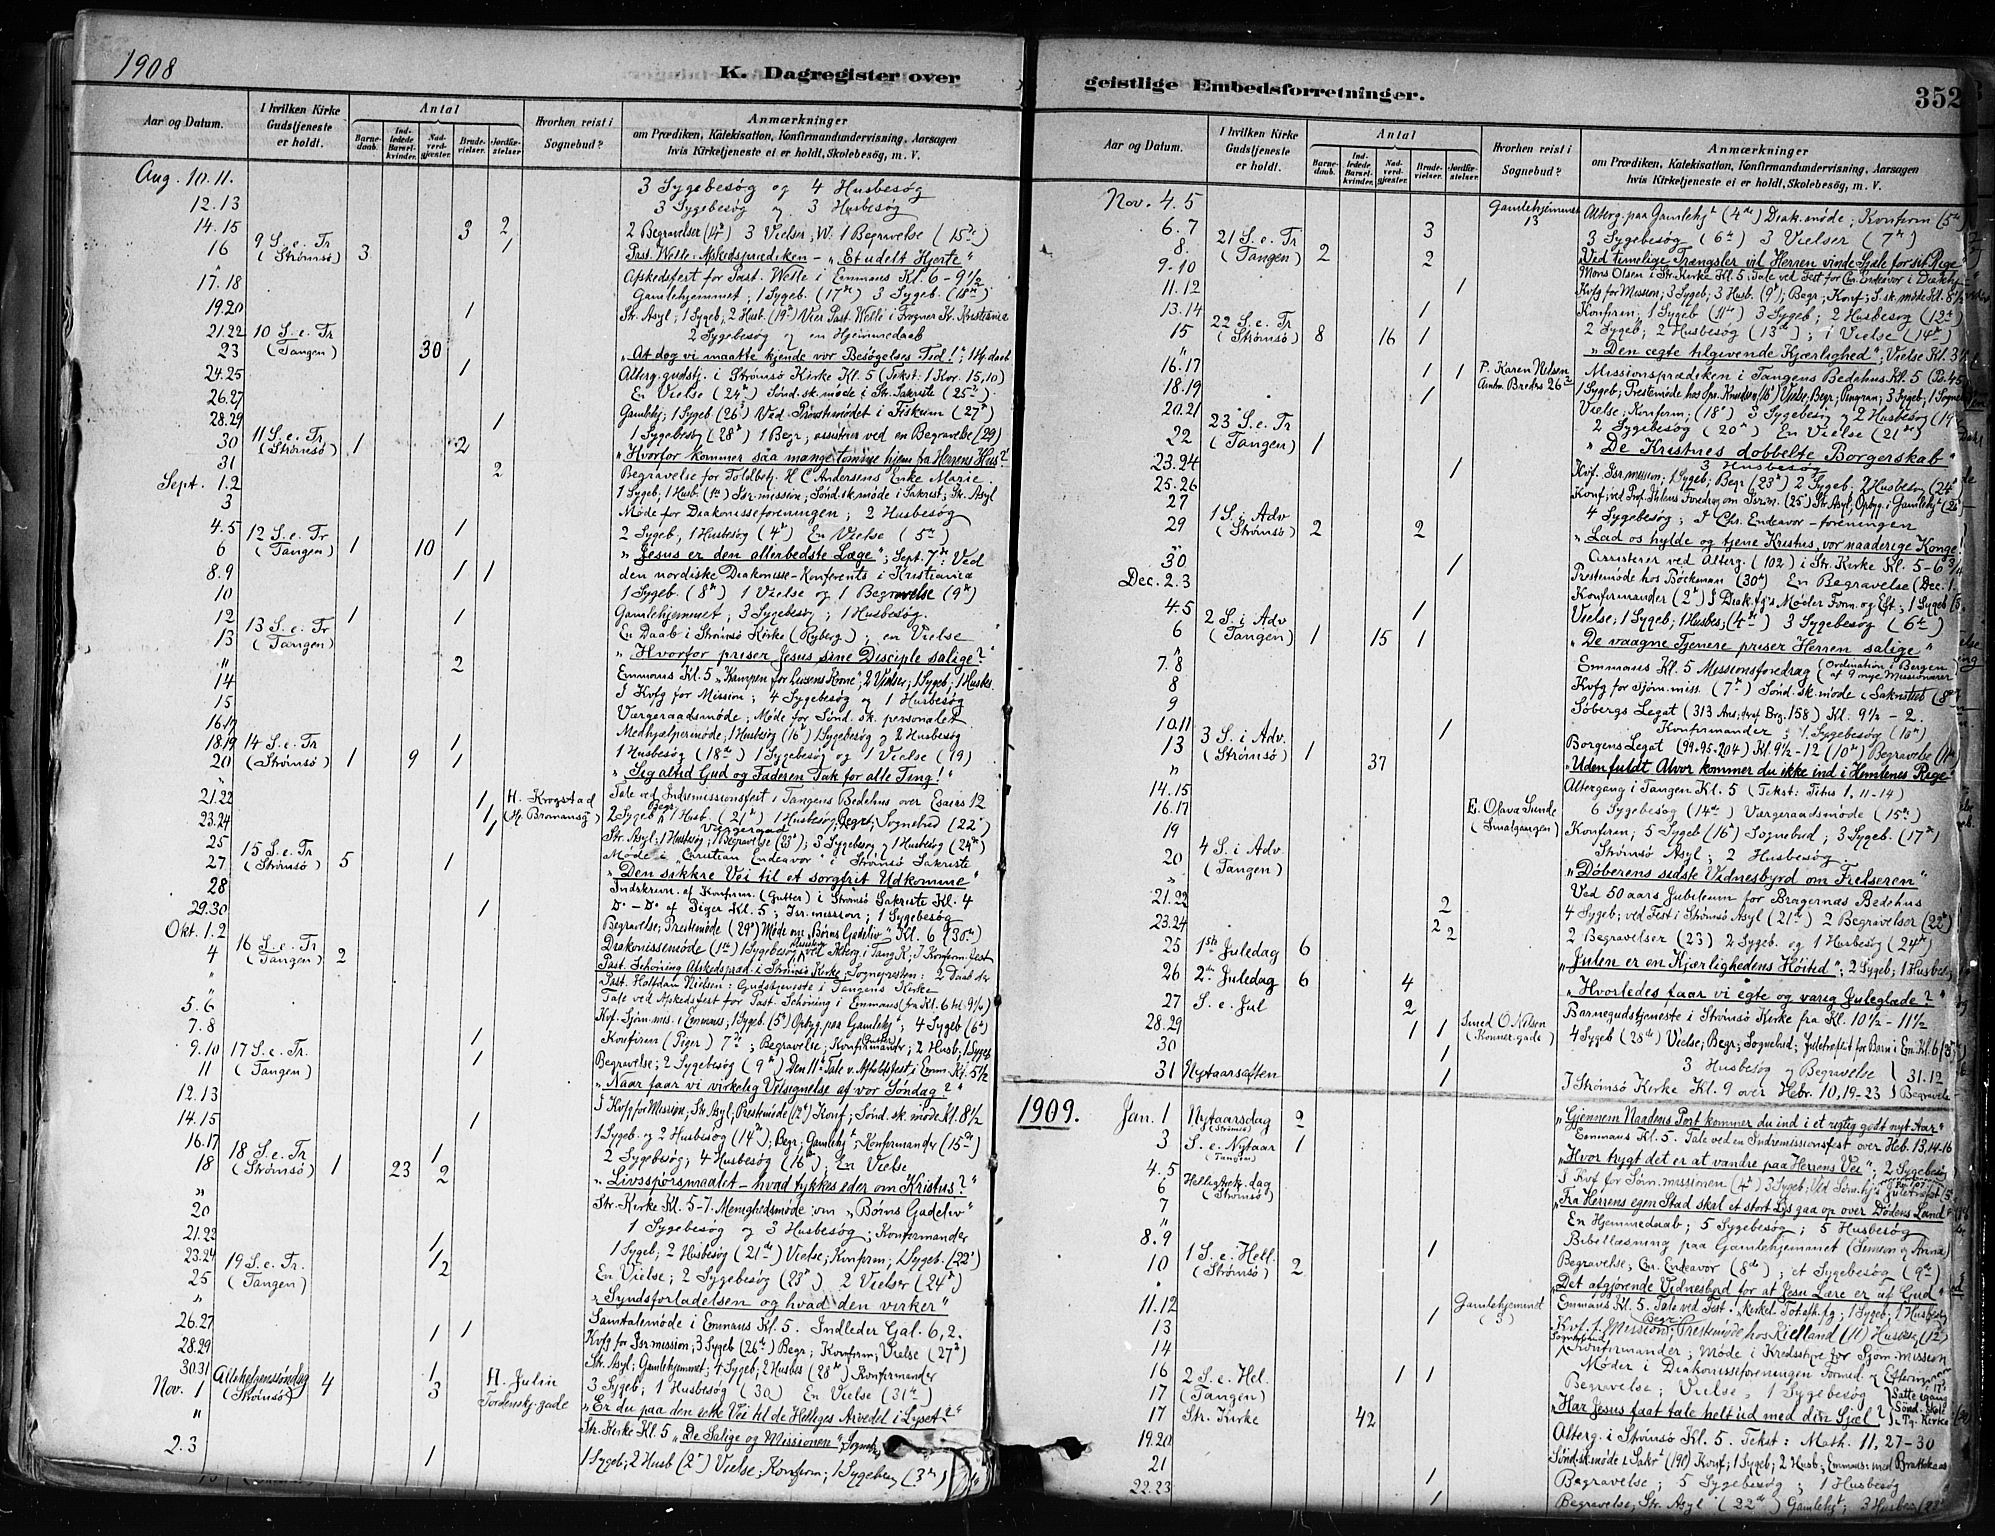 1908
K. Dagregister over
Aar og Datum.
I hvilken Kirke Gudstjeneste er holdt.
Antal
Barnedaab.
Indledede Barselkvinder.
Nadverdgjester.
Brudevielser.
Jordfæstelser
Hvorhen reist i Sognebud?
Anmærkninger
om Prædiken, Katekisation, Konfirmandundervisning, Aarsagen
hvis Kirketjeneste ei er holdt, Skolebesøg, m. V.
Aug. 10. 11. 3 Sygebesøg og 4 Husbesøg
12. 13 3 Sygebesøg og 3 Husbesøg
14. 15 3 2 2 Begravelser (14de) 3 Vielser, 1 Begravelse (15de)
16 9 S. e. Tr (Strømsø) 3 1 Past. Welle: Afskedsprædiken - "Et udelt Hjerte"
" Afskedsfest for Past. Welle i Emmaus Kl. 6 - 9½
17. 18 Gamlehjemmet; 1 Sygeb. (17de) 3 Sygeb. (18de)
19. 20 1 Str. Asyl; 1 Sygeb, 2 Husb. (19de) Vier Past. Welle i Frogner K. Kristiania
21. 22 2 Sygebesøg og en Hjemmedaab
23 10 S. e. Tr (Tangen) 30 "At dog vi maatte kjende vor Besøgelses Tid!"
24. 25 1 Alterg. gudstj. i Strømsø Kirke Kl. 5 (Tekst: 1 Kor. 15, 10)
26. 27 En Vielse (24de) Sønd. sk. møde i Str. Sakristi (25de)
28. 29 1 Gamlehj; 1 Sygeb (26de) Ved Provstemødet i Fiskum (27de)
30 11 S. e. Tr (Strømsø) 1 2 1 Sygebesøg (28de) 1 Begr; assisterer ved en Begravelse (29)
"Hvorfor kommer saa mange tomme hjem fra Herrens Hus?"
31 2 Begravelse for Toldbetj. H C Andersens Enke Marie.
Sept. 1. 2 1 Sygeb; 1 Husb. (1ste) Isr. mission; Sønd. sk. møde i Sakrist; Str. Asyl
3 Møde for Diakonisseforeningen; 2 Husbesøg
4. 5 1 2 Sygeb, 1 Husbesøg (4de) En Vielse (5te)
6 12 S. e. Tr (Tangen) 1 10 "Jesus er den allerbedste Læge"; Sept. 7de: Ved
den nordiske Diakonisse-Konferents i Kristiania
8. 9 1 1 1 Sygeb. (8de) 1 Vielse og 1 Begravelse (9de)
10 Gamlehjemmet; 3 Sygebesøg; 1 Husbesøg.
12 1 1 En Daab i Strømsø Kirke (Ryberg); en Vielse
13 13 S. e. Tr (Tangen) "Hvorfor priser Jesus sine Disciple salige?"
" 2 Emmaus Kl. 5 "Kampen for Livsens Krone"; 2 Vielser; 1 Sygeb; 1 Husbes.
14 I Kvfg for Mission; 4 Sygebesøg og 1 Husbesøg
15 Værgeraadsmøde; Møde for Sønd. sk. personalet
16. 17 Medhjælpermøde; 1 Husbesøg (16de) 1 Sygebesøg og 2 Husbesøg
18. 19 1 1 Husbesøg (18de) 1 Sygebesøg og 1 Vielse (19)
20 14 S. e. Tr (Strømsø) 1 9 1 "Sig altid Gud og Faderen Tak for alle Ting!"
" Tale ved Indremissionsfest i Tangens Bedehus over Esaias 12
21. 22 1 H. Krogstad 2 Sygeb 1 Husb. (21de) 1 Husbesøg, Begr; Sognebud (22de)
23. 24 1 (Hj. Bromansg) Str. Asyl; 1 Husbesøg; 1 Begravelse (23de); 3 Sygebesøg og 1 Husbesøg (24de)
25 Møde i "Christian Endeavor" i Strømsø Sakristi
27 15 S. e. Tr (Strømsø) 5 1 "Den sikkre Vei til et sorgfrit Udkomme"
28 Indskrivn. af Konfirm. (Gutter) i Strømsø Sakristi Kl. 4
29. 30 1 Do - Do af Piger Kl. 5; Isr. mission; 1 Sygebesøg
Okt. 1. 2 Begravelse; Prestemøde (29de) Møde om "Børns Gadeliv" Kl. 6 (30te)
4 16 S. e. Tr. (Tangen) 2 Diakonissemøde (1ste) 1 Sygebesøg
" Past. Schøning Afskedspræd. i Strømsø Kirke, Sognepresten: 2 Daab der
" Past. Halfdan Nielsen: Gudstjeneste i Tangens Kirke
5. 6 Tale ved Afskedsfest for Past. Schøning i Emmaus (fra Kl. 6 til 9½)
7. 8 Kvf. Sjøm. mis. i Emmaus; 1 Sygeb (5te) Opbyg. paa Gamlehj; 4 Sygeb (6te)
9. 10 1 Konfirm (Piger) 7de; Begravelse; Konfirmander; 2 Husb; 1 Sygeb
11 17 S. e. Tr. (Tangen) 1 Begravelse; 2 Sygebesøg (9de)
12. 13 "Naar faar vi virkelig Velsignelse af vor Søndag?"
14. 15 1 I Kvfg for Mission; Str. Asyl; Prestemøde (12te) Konf; Sønd. sk. møde Kl. 8½
16. 17 1 1 Sygeb. og 2 Husbesøg (14de); Begr; Gamlehj; Konfirmander (15de)
18 18 S. e. Tr (Strømsø) 1 23 2 2 Sygebesøg; 4 Husbesøg (16de); En Vielse
" "Livsspørsmaalet - hvad tykkes eder om Kristus?"
20 Str. Kirke Kl. 5-7. Menighedsmøde om "Børns Gadeliv"
21. 22 1 1 Sygebesøg og 3 Husbesøg; Konfirmander
23. 24 1 1 Sygeb; 2 Husbesøg (21de) Vielse; Konfirm; 1 Sygeb. (22de)
25 19 S. e. Tr. (Tangen) 2 En Vielse; 2 Sygebesøg (23de) 2 Vielser (24de)
" "Syndsforladelsen og hvad den virker"
26. 27 Samtalemøde i Emmaus Kl. 5. Indleder Gal. 6, 2.
28. 29 1 1 Kvfg for Isr. mission; 3 Sygeb (26de) Begr; Konfirm; Vielse (27de)
30. 31 1 Str. Asyl; Gamlehjemmet; 4 Sygeb; 2 Husbes (28de) Konfirmander
Nov. 1 Allehelgenssøndag (Strømsø) 4 3 H. Julin Tordenskj. gade 3 Sygeb; 1 Husbesøg (30) En Vielse (31te)
" "Er du paa den rette Vei til de Helliges Arvedel i Lyset?"
Str. Kirke Kl. 5 "De Salige og Missionen"
2. 3 1 1 Sygeb; 2 Husb (2den) Vielse; Konfirm; 1 Sygebesøg (3die)
geistlige Embedsforretninger.
352
Aar og Datum.
I hvilken Kirke Gudstjeneste er holdt.
Antal
Barnedaab.
Indledede Barselkvinder.
Nadverdgjester.
Brudevielser.
Jordfæstelser
Hvorhen reist i Sognebud?
Anmærkninger
om Prædiken, Katekisation, Konfirmandundervisning, Aarsagen
hvis Kirketjeneste ei er holdt, Skolebesøg, m. V.
Nov. 4. 5 Gamlehjemmet 13 Alterg. paa Gamlehj (4de) Diak. møde; Konfirm (5te)
6. 7 3 3 Sygebesøg (6te) 3 Vielser (7de)
8. 21 S. e. Tr (Tangen) 2 2 "Ved timelige Trængsler vil Herren vinde Sjæle for sit Rige"
9. 10 Mons Olsen i Str. Kirke Kl. 5. Tale ved Fest for Chr. Endeavor i Diakhj
11. 12 1 Kvfg for Mission; 3 Sygeb; 3 Husb. (9de); Begr; Konf; S. sk. møde Kl. 8½
13. 14 1 Konfirm; 1 Sygeb (11te) 3 Sygeb; 2 Husbesøg (12te)
15 22 S. e. Tr (Strømsø) 8 16 1 2 Sygeb; 2 Husbesøg (13de); 1 Vielse (14de)
" "Den ægte tilgivende Kjærlighed"; Vielse Kl. 3½
16. 17 1 1 P. Karen Nelsen Missionsprædiken i Tangens Bedehus Kl. 5
18. 19 1 Amtm. Bredts 26 1 Sygeb; Prestemøde hos
20. 21 Vielse; Konfirm; (18de) 3 Sygebesøg og 2 Husbesøg (19
22 23 S. e. Tr. (Tangen) 1 2 Sygebesøg (20de) En Vielse (21de)
"De Kristnes dobbelte Borgerskab"
23. 24 1 3 Husbesøg
25. 26 Kvf. Isr. mission; 1 Sygeb; Begr (23de) 2 Sygeb. 2 Husbesøg (24de
27 Konf; ved Prof. Ihlens Foredrag om Isr. m. (25) Str. Asyl; Opbyg. i Gamlehj (26
29 1 S. i Adv (Strømsø) 2 2 4 Sygebesøg; I Chr. Endeavor-foreningen
" "Lad os hylde og tjene Kristus, vor naaderige Konge!"
30 1 Assisterer ved Alterg. (102) i Str. Kirke Kl. 5-6¾
Dec. 2. 3 Prestemøde hos Böckman (30te) En Begravelse (Dec. 1
4. 5 1 Konfirmander (2den) I Diak. fg's Møder Form. og Eft; 1 Sygeb (3
6 2 S. i Adv (Tangen) 1 15 1 Vielse; 1 Sygeb; 1 Husbes; (4de) 3 Sygebesøg (6te)
" "De vaagne Tjenere priser Herren salige"
7. 8 Emmaus Kl. 5 Missionsforedrag (Ordination i Bergen af 9 nye Missionærer
8 Kvfg for Sjøm. miss. (7de) Sønd. sk. møde i Sakristiet (8de
9 Søbergs Legat (313 Ans; deraf Brg. 158) Kl. 9½ - 2.
10. 11 1 Konfirmander; 1 Sygebesøg (10de)
13 3 S. i Adv. (Strømsø) 1 Borgens Legat (99-95-204) Kl. 9½-12 (10de) Begravelse (11te
" 37 "Uden fuldt Alvor kommer du ikke ind i Himlenes Rige"
14. 15 Altergang i Tangen Kl. 5 (Tekst: Titus 1, 11-14)
16. 17 E. Olava Sunde (Smalgangen) 6 Sygebesøg (14de) Værgeraadsmøde (15de)
19 Konfirm; 5 Sygeb (16de) Sognebud; 3 Sygeb. (17de)
20 4 S. i Adv (Tangen) Strømsø Asyl; 2 Husbesøg.
" "Døberens sidste Vidnesbyrd om Frelseren"
21. 22 2 Ved 50 aars Jubileum for Bragernæs Bedehus
23. 24 2 2 4 Sygeb; ved Fest i Strømsø Asyl (21de) 2 Begravelser (22de)
25 1ste Juledag 6 2 Begravelser (23) 2 Sygeb. og 1 Husbesøg (24de)
"Julen er en Kjærlighedens Høitid"; 2 Sygeb; 1 Husbes.
26 2den Juledag 6 4 "Hvorledes faar vi egte og varig Juleglæde?"
27 S. e. Jul 2 Barnegudstjeneste i Strømsø Kirke fra Kl. 10½ - 11½
28. 29 1 1 Smed O. Nilsen (Konner. gade) 4 Sygeb (28de) Vielse; Begr; Sognebud; Juletræfest for Børn i Em. Kl. 6
30 1 3 Husbesøg og Begravelse } 31. 12
31 Nytaarsaften 1 I Strømsø Kirke Kl. 9 over Hebr. 10, 19-23 } Begravelse
1909. Jan. 1 Nytaarsdag (Strømsø) 2 "Gjennem Naadens Port kommer du ind i et rigtig godt nyt Aar"
Emmaus Kl. 5. Tale ved en Indremissionsfest over Heb. 13, 14-16
3 S. e. Nytaar (Tangen) 1 "Hvor trygt det er at vandre paa Herrens Vei"; 2 Sygebesøg
4. 5 I Kvf for Sjøm. missionen (4de) 3 Sygeb; Ved Sjøm. hj's Juletræfest (5
6 Hellig trek. dag (Strømsø) "Fra Herrens egen Stad skal et stort Lys gaa op over Dødens Land"
7 En Hjemmedaab; 5 Sygebesøg; 5 Husbesøg
" Bibellæsning paa Gamlehjemmet (Simeon og Anna)
8. 9 1 Begravelse; Chr. Endeavor (8de); et Sygebesøg (9de)
10 1 S. e. Hell. (Strømsø) 2 "Det afgjørende Vidnesbyrd for at Jesu Lære er af Gud"
" Emmaus Kl. 5. Tale ved Fest. Kirkel. Tot. afh. fg; 1 Sygeb; 1 Husbesøg
11. 12 1 Gamlehjemmet (3) Kvf. f. Mission; Prestemøde hos Kielland (11) Husbesøg (12te)
13 Konfirmander; Møde i Kredsstyre for Sjøm. mission
14 Møder i Diakonisseforeningen Formid. og Efterm.
16 1 1 Begravelse; Vielse; 1 Sygebesøg
17 2 S. e. Hel. (Tangen) "Har Jesus faat tale helt ud med din Sjæl?"
17 Str. Kirke 42 Alterg. i Strømsø Kl. 5. Tekst: Math. 11, 27-30
19. 20 Sønd. sk. møde i Sakr (19de) Konf; 1 Sygeb; 2 Husb; Emmaus: med Brattekaas
21 1 Begravelse; 5 Sygebesøg; 1 Husbesøg
22. 23 1 Begravelse; Str. Asyl (22de) Gamlehj; 3 Husbesøg (23de